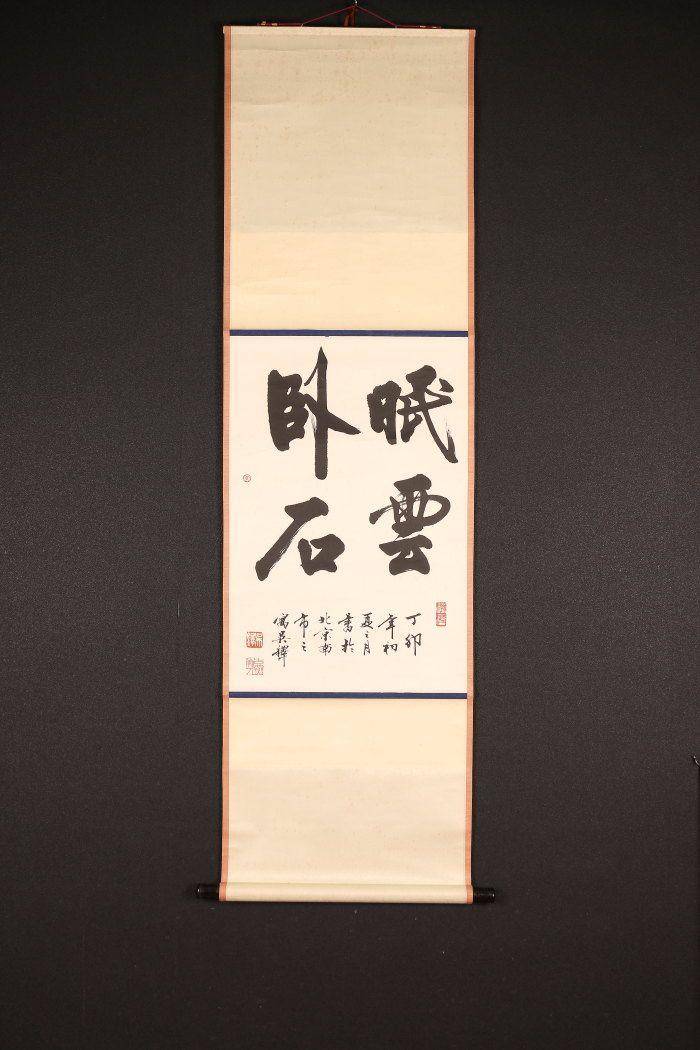 眠雲
臥石
丁卯
年初
夏之月
書於
北京南
市之
寓吴鐸